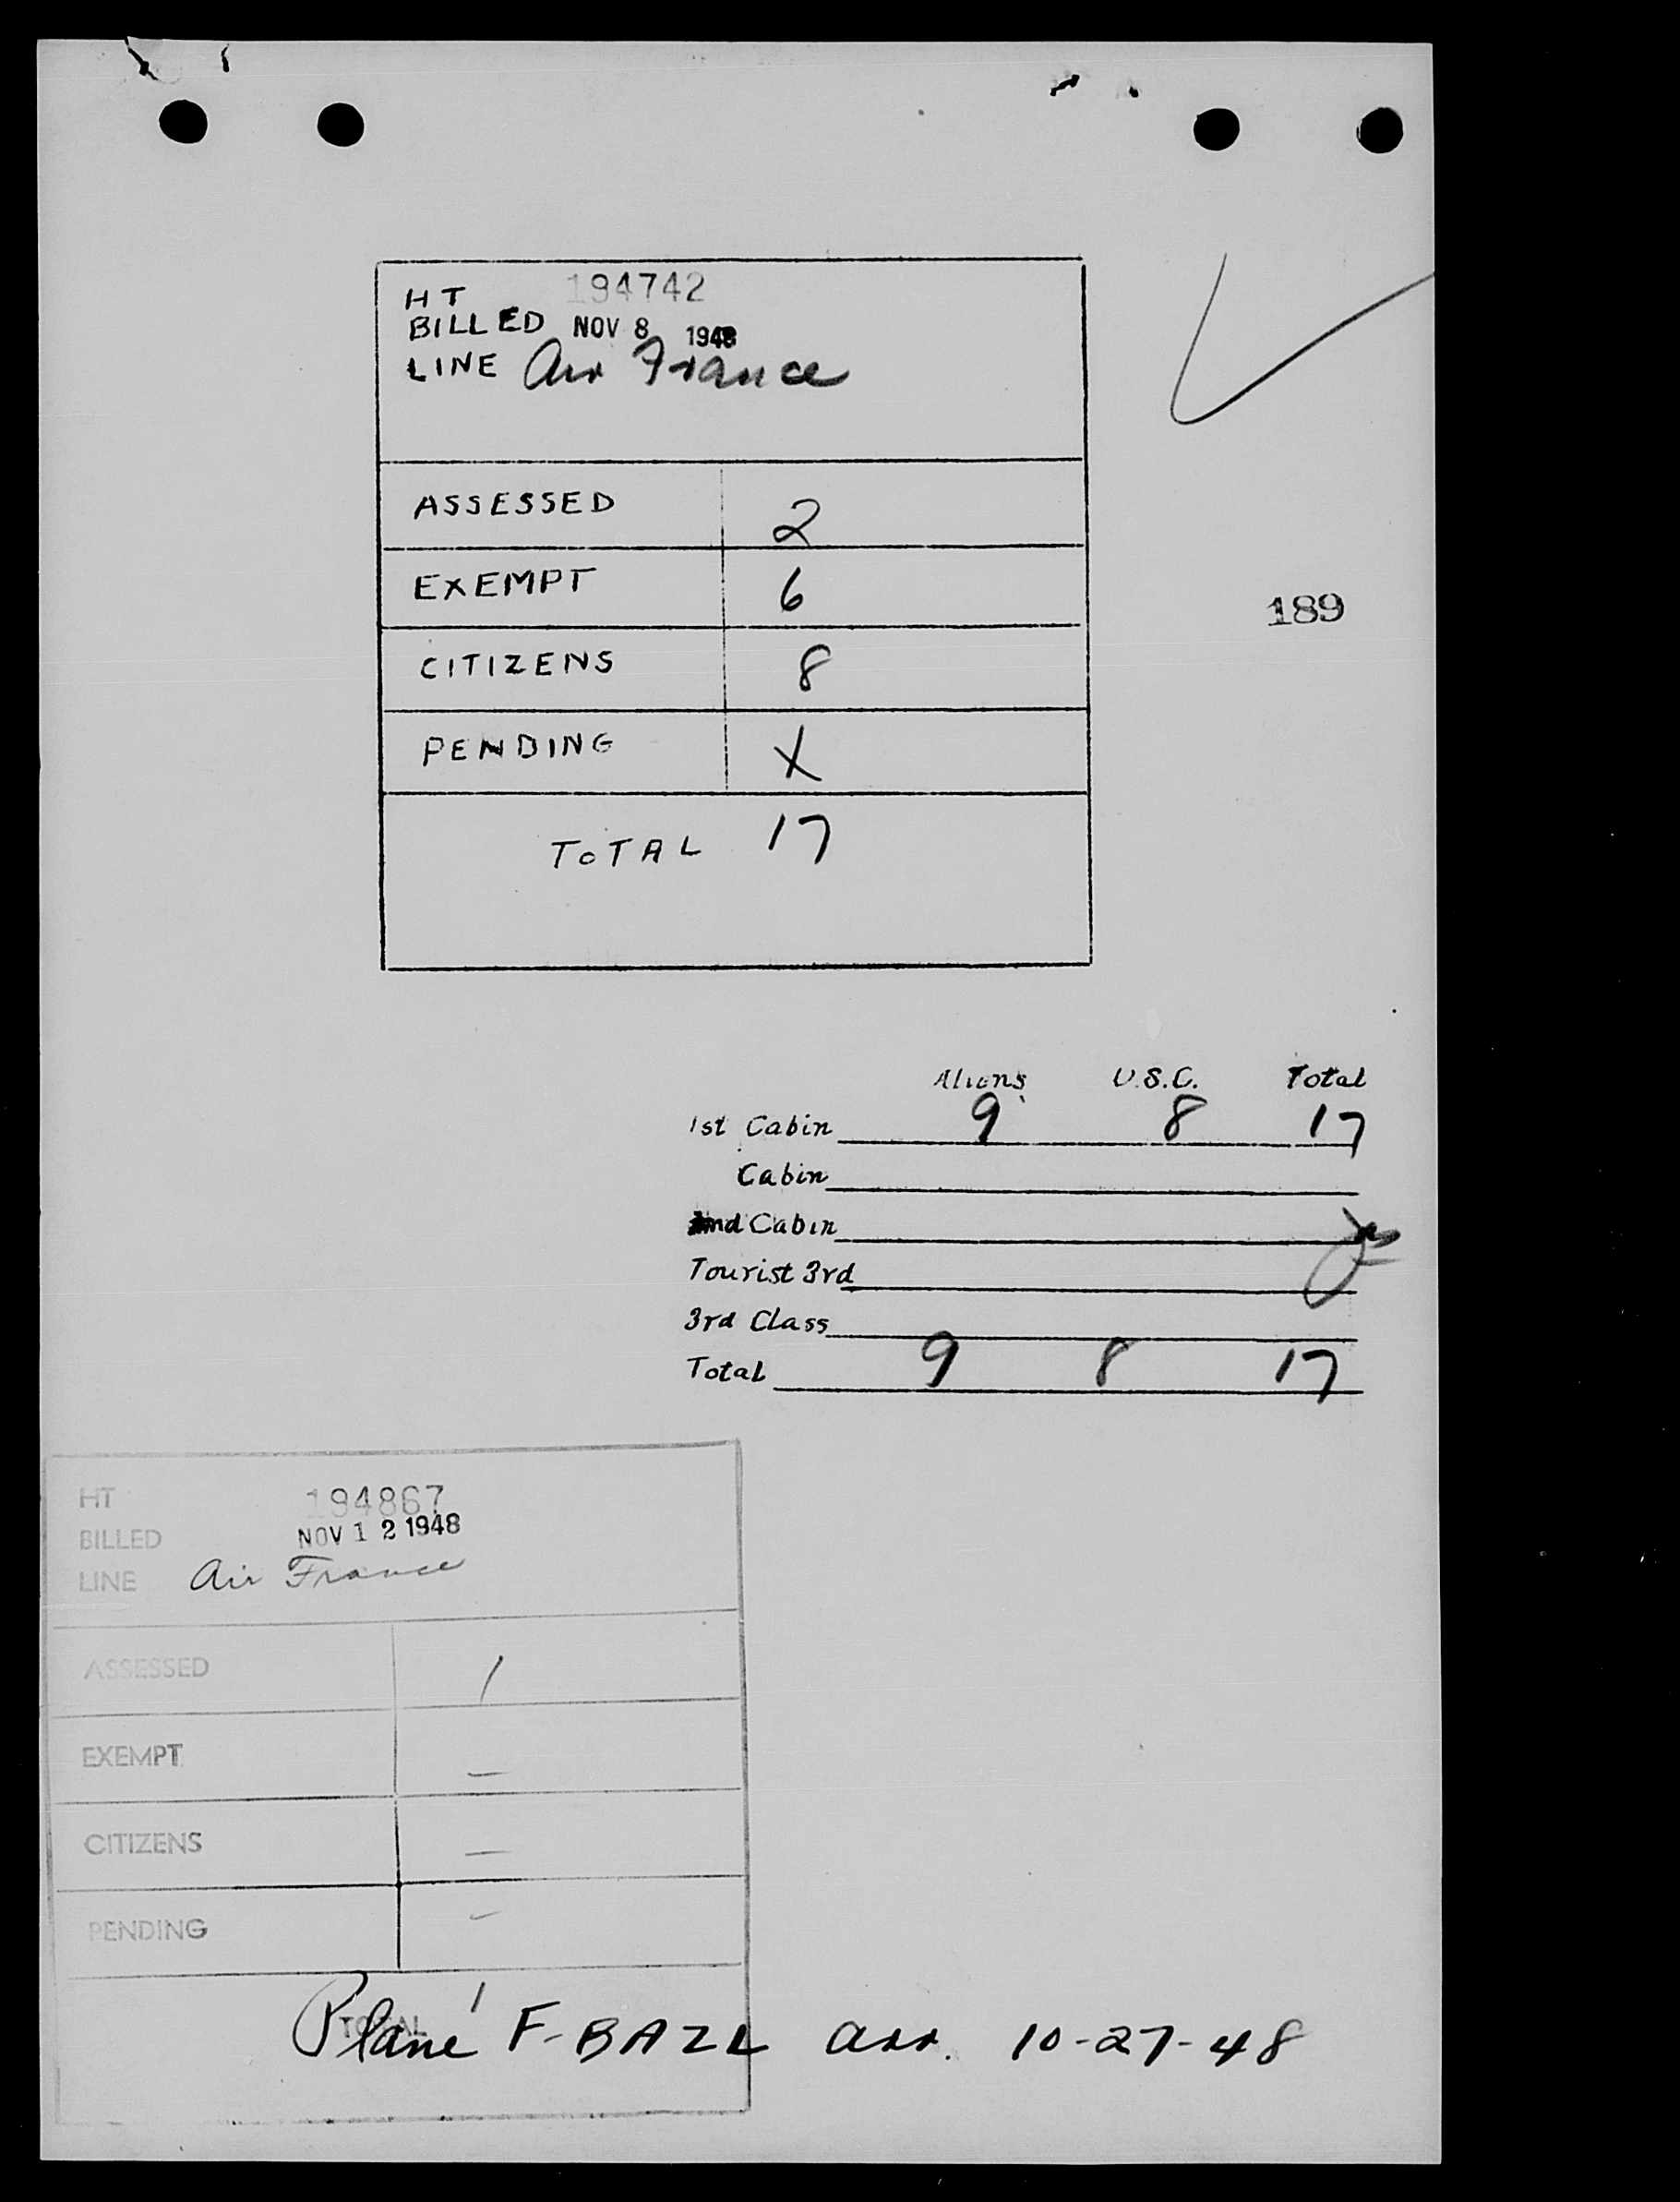 HT 194742
BILLED NOV 8 1948
LINE Air France
ASSESSED 2
EXEMPT 6
189
CITIZENS 8
PENDING X
TOTAL 17
Aliens U.S.C. Total
1st Cabin 9 8 17
Cabin
2nd Cabin
Tourist 3rd
3rd Class
Total 9 8 17
HT 194867
BILLED NOV 12 1948
LINE Air France
ASSESSED 1
EXEMPT –
CITIZENS –
PENDING –
TOTAL 1
Plane F-BAZL arr. 10-27-48